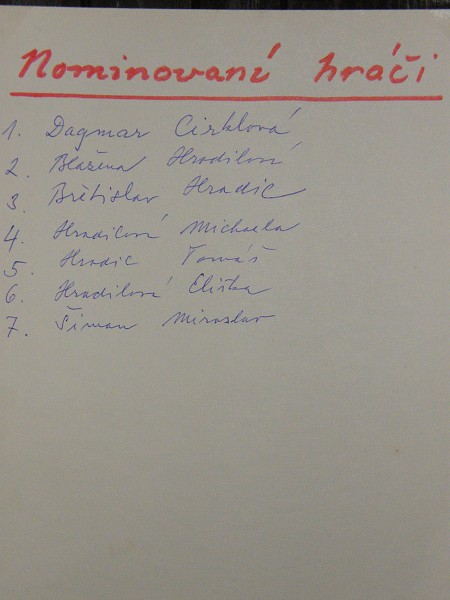 Nominovaní hráči
1. Dagmar Cirklová
2. Blažena Hradilová
3. Břetislav Hradic
4. Hradicová Michaela
5. Hradic Tomáš
6. Hradilová Eliška
7. Šiman Miroslav